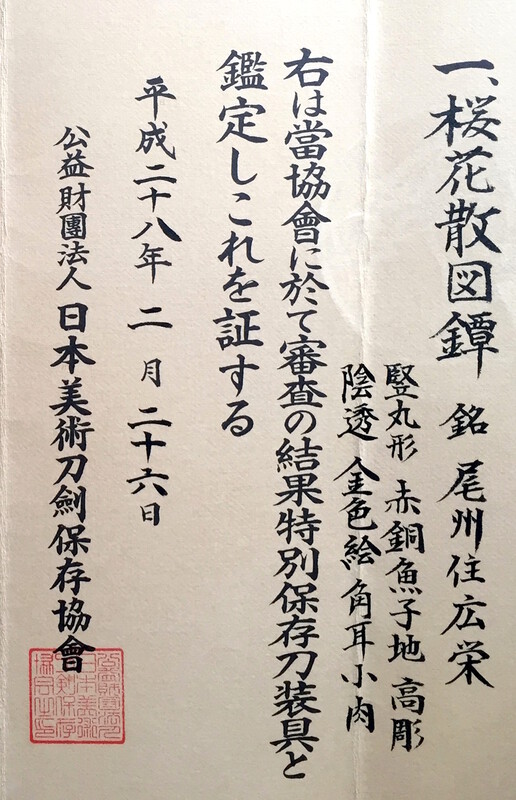 一、桜花散図鐔 銘 尾州住広栄
竪丸形 赤銅魚子地 高彫
陰透 金色絵 角耳小肉
右は當協會に於て審査の結果特別保存刀装具と
鑑定しこれを証する
平成二十八年 二月 二十六日
公益財團法人 日本美術刀劍保存協會